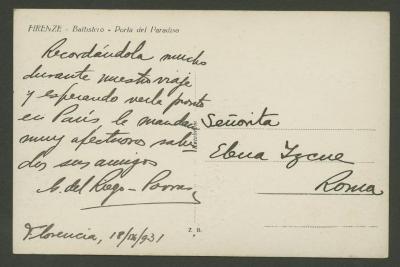 FIRENZE - Battistero - Porta del Paradiso
Recordándola mucho
durante nuestro viaje
y esperando verla pronto
en París le mandan
muy afectuosos salu
dos sus amigos
G. del Riego - Porras
Florencia, 18/IX/931
Señorita
Elena Izcue
Roma
Z. B.